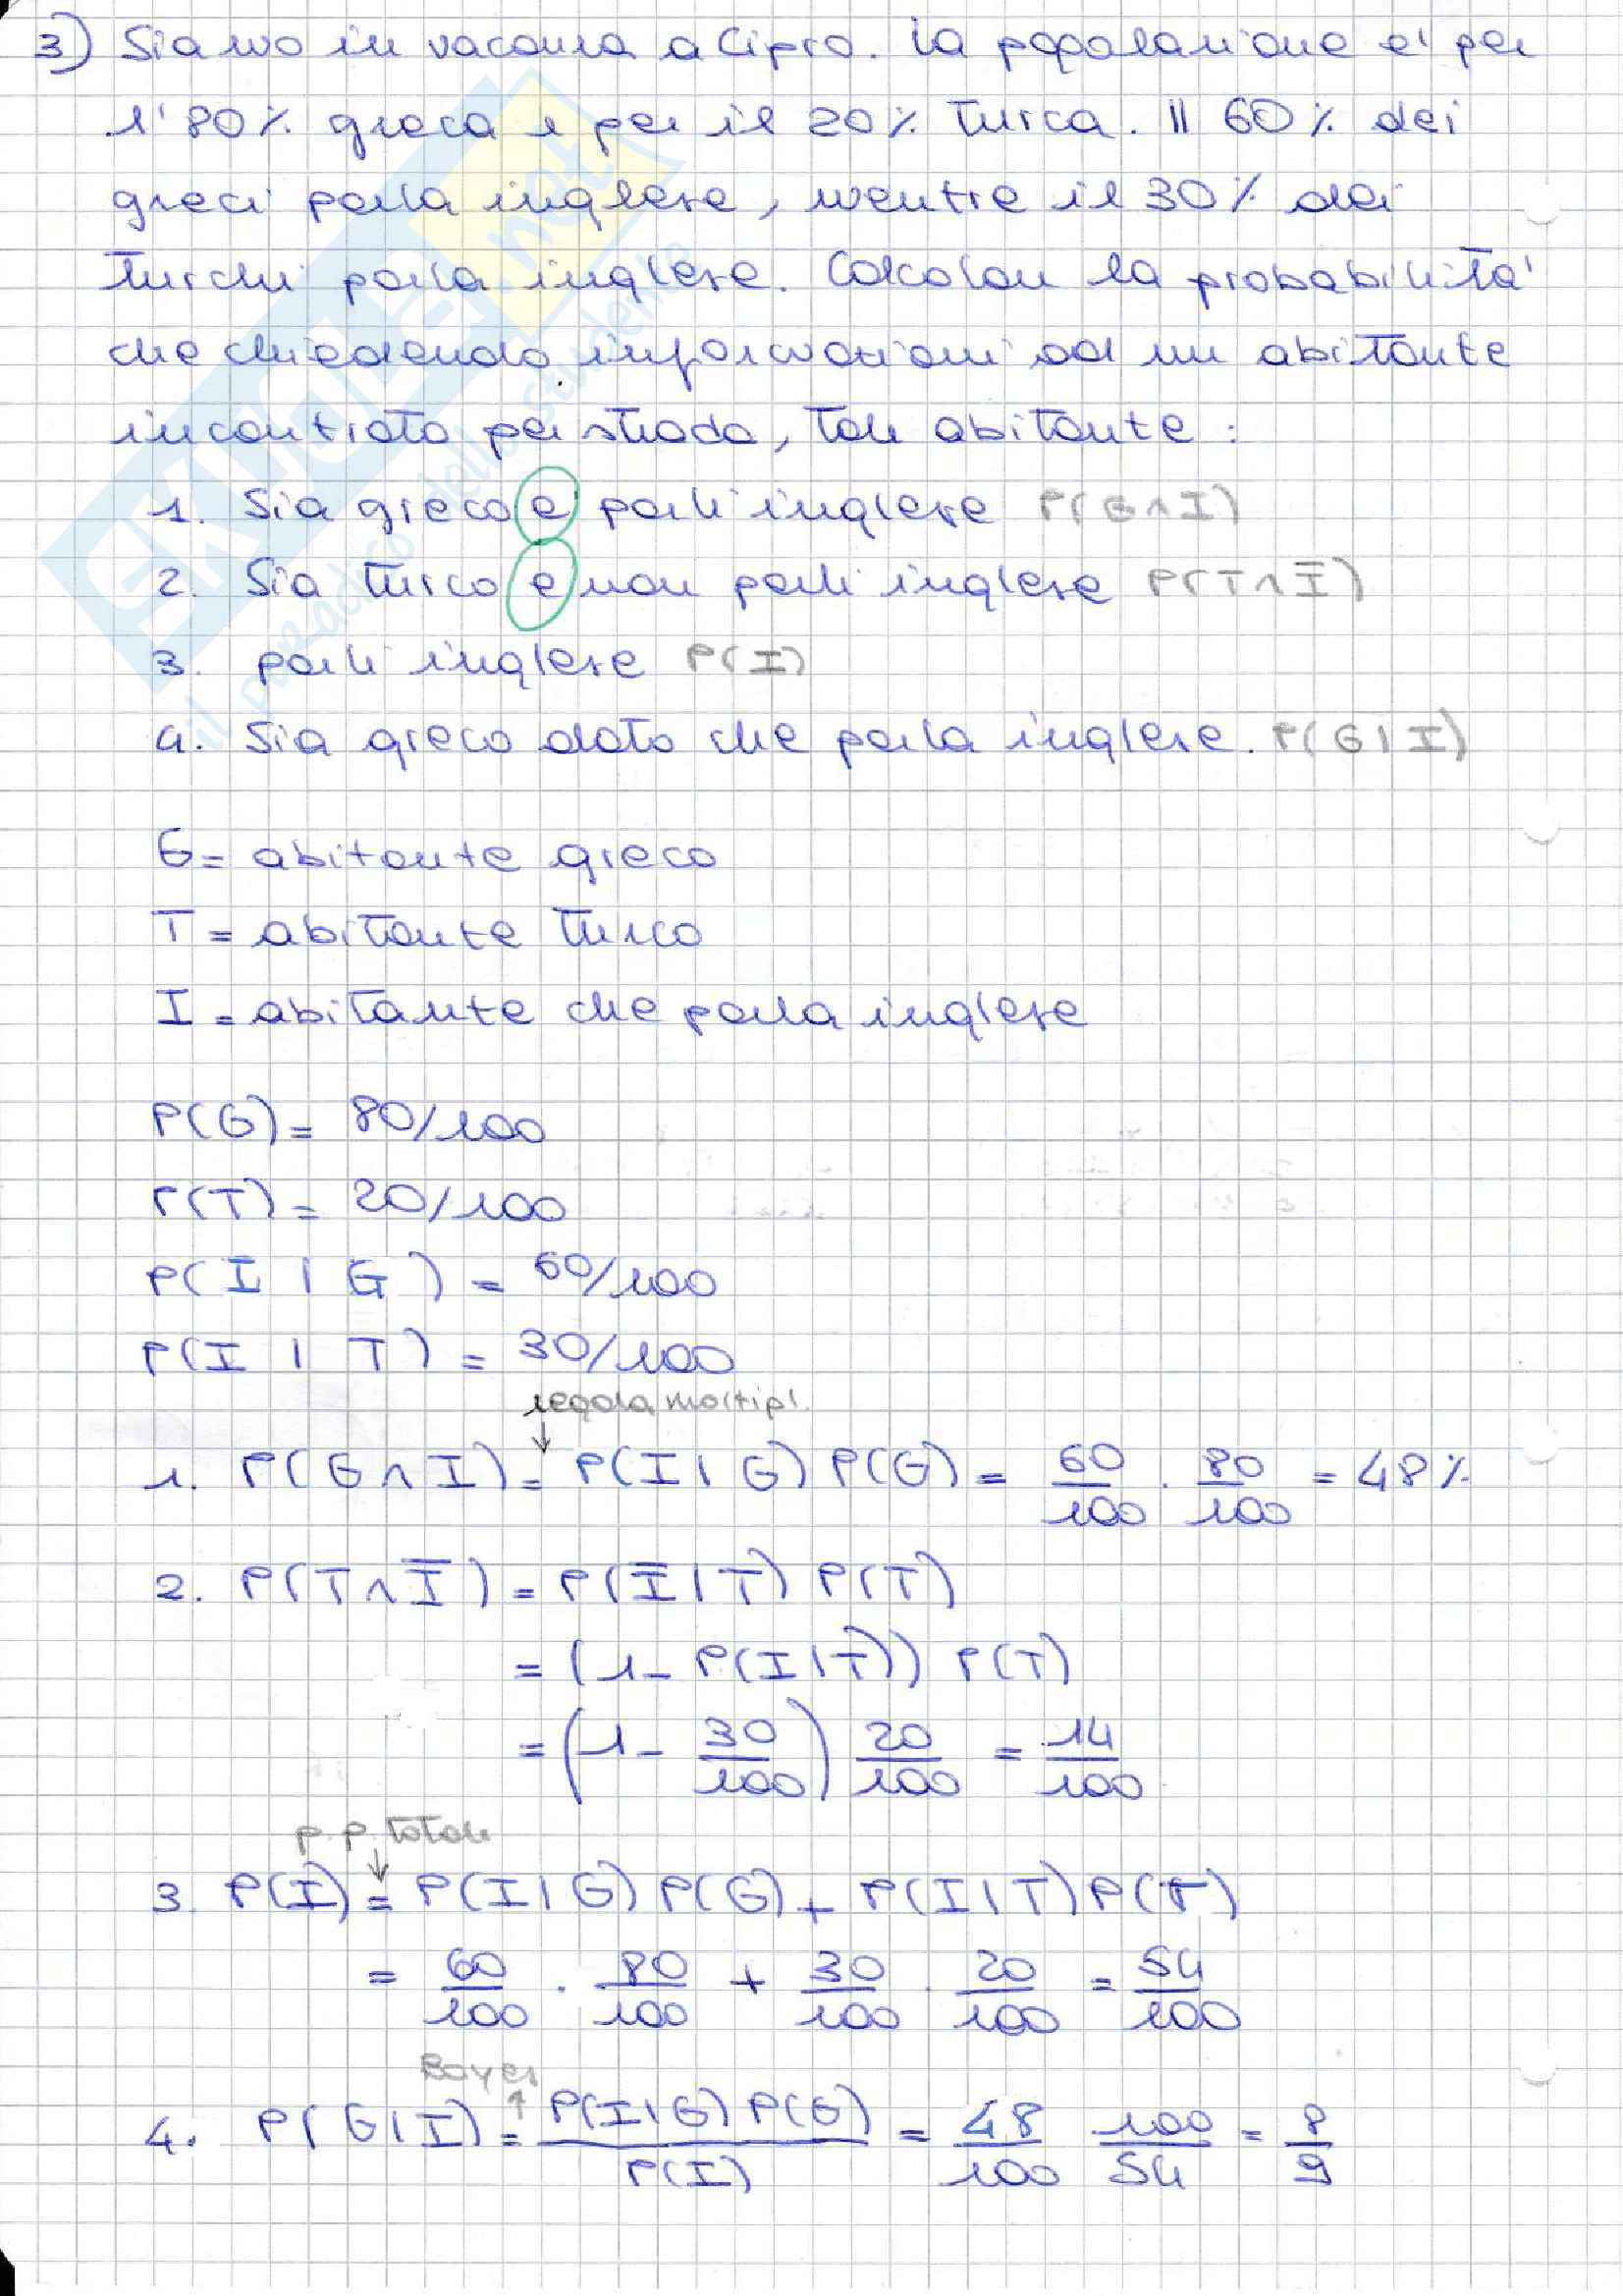 3) Siamo in vacanza a Cipro. La popolazione e' per
l'80% greca e per il 20% turca. Il 60% dei
greci parla inglese, mentre il 30% dei
turchi parla inglese. Calcolare la probabilita'
che chiedendo informazioni ad un abitante
incontrato per strada, tale abitante :
1. Sia greco e parli inglese P(G∧I)
2. Sia turco e non parli inglese P(T∧Ī)
3. parli inglese P(I)
4. Sia greco dato che parla inglese. P(G|I)
G= abitante greco
T= abitante turco
I= abitante che parla inglese
P(G)= 80/100
P(T)= 20/100
P(I | G) = 60/100
P(I | T) = 30/100
regola moltipl.
↓
1. P(G∧I) = P(I|G) P(G) = 60/100 · 80/100 = 48%
2. P(T∧Ī) = P(Ī|T) P(T)
= (1- P(I|T)) P(T)
= (1- 30/100) 20/100 = 14/100
p.p. totale
↓
3. P(I) = P(I|G) P(G) + P(I|T) P(T)
= 60/100 · 80/100 + 30/100 · 20/100 = 54/100
Bayes
↑
4. P(G|I) = P(I|G) P(G)/P(I) = 48/100 100/54 = 8/9
SKUOLA.net
il paradiso dello studente